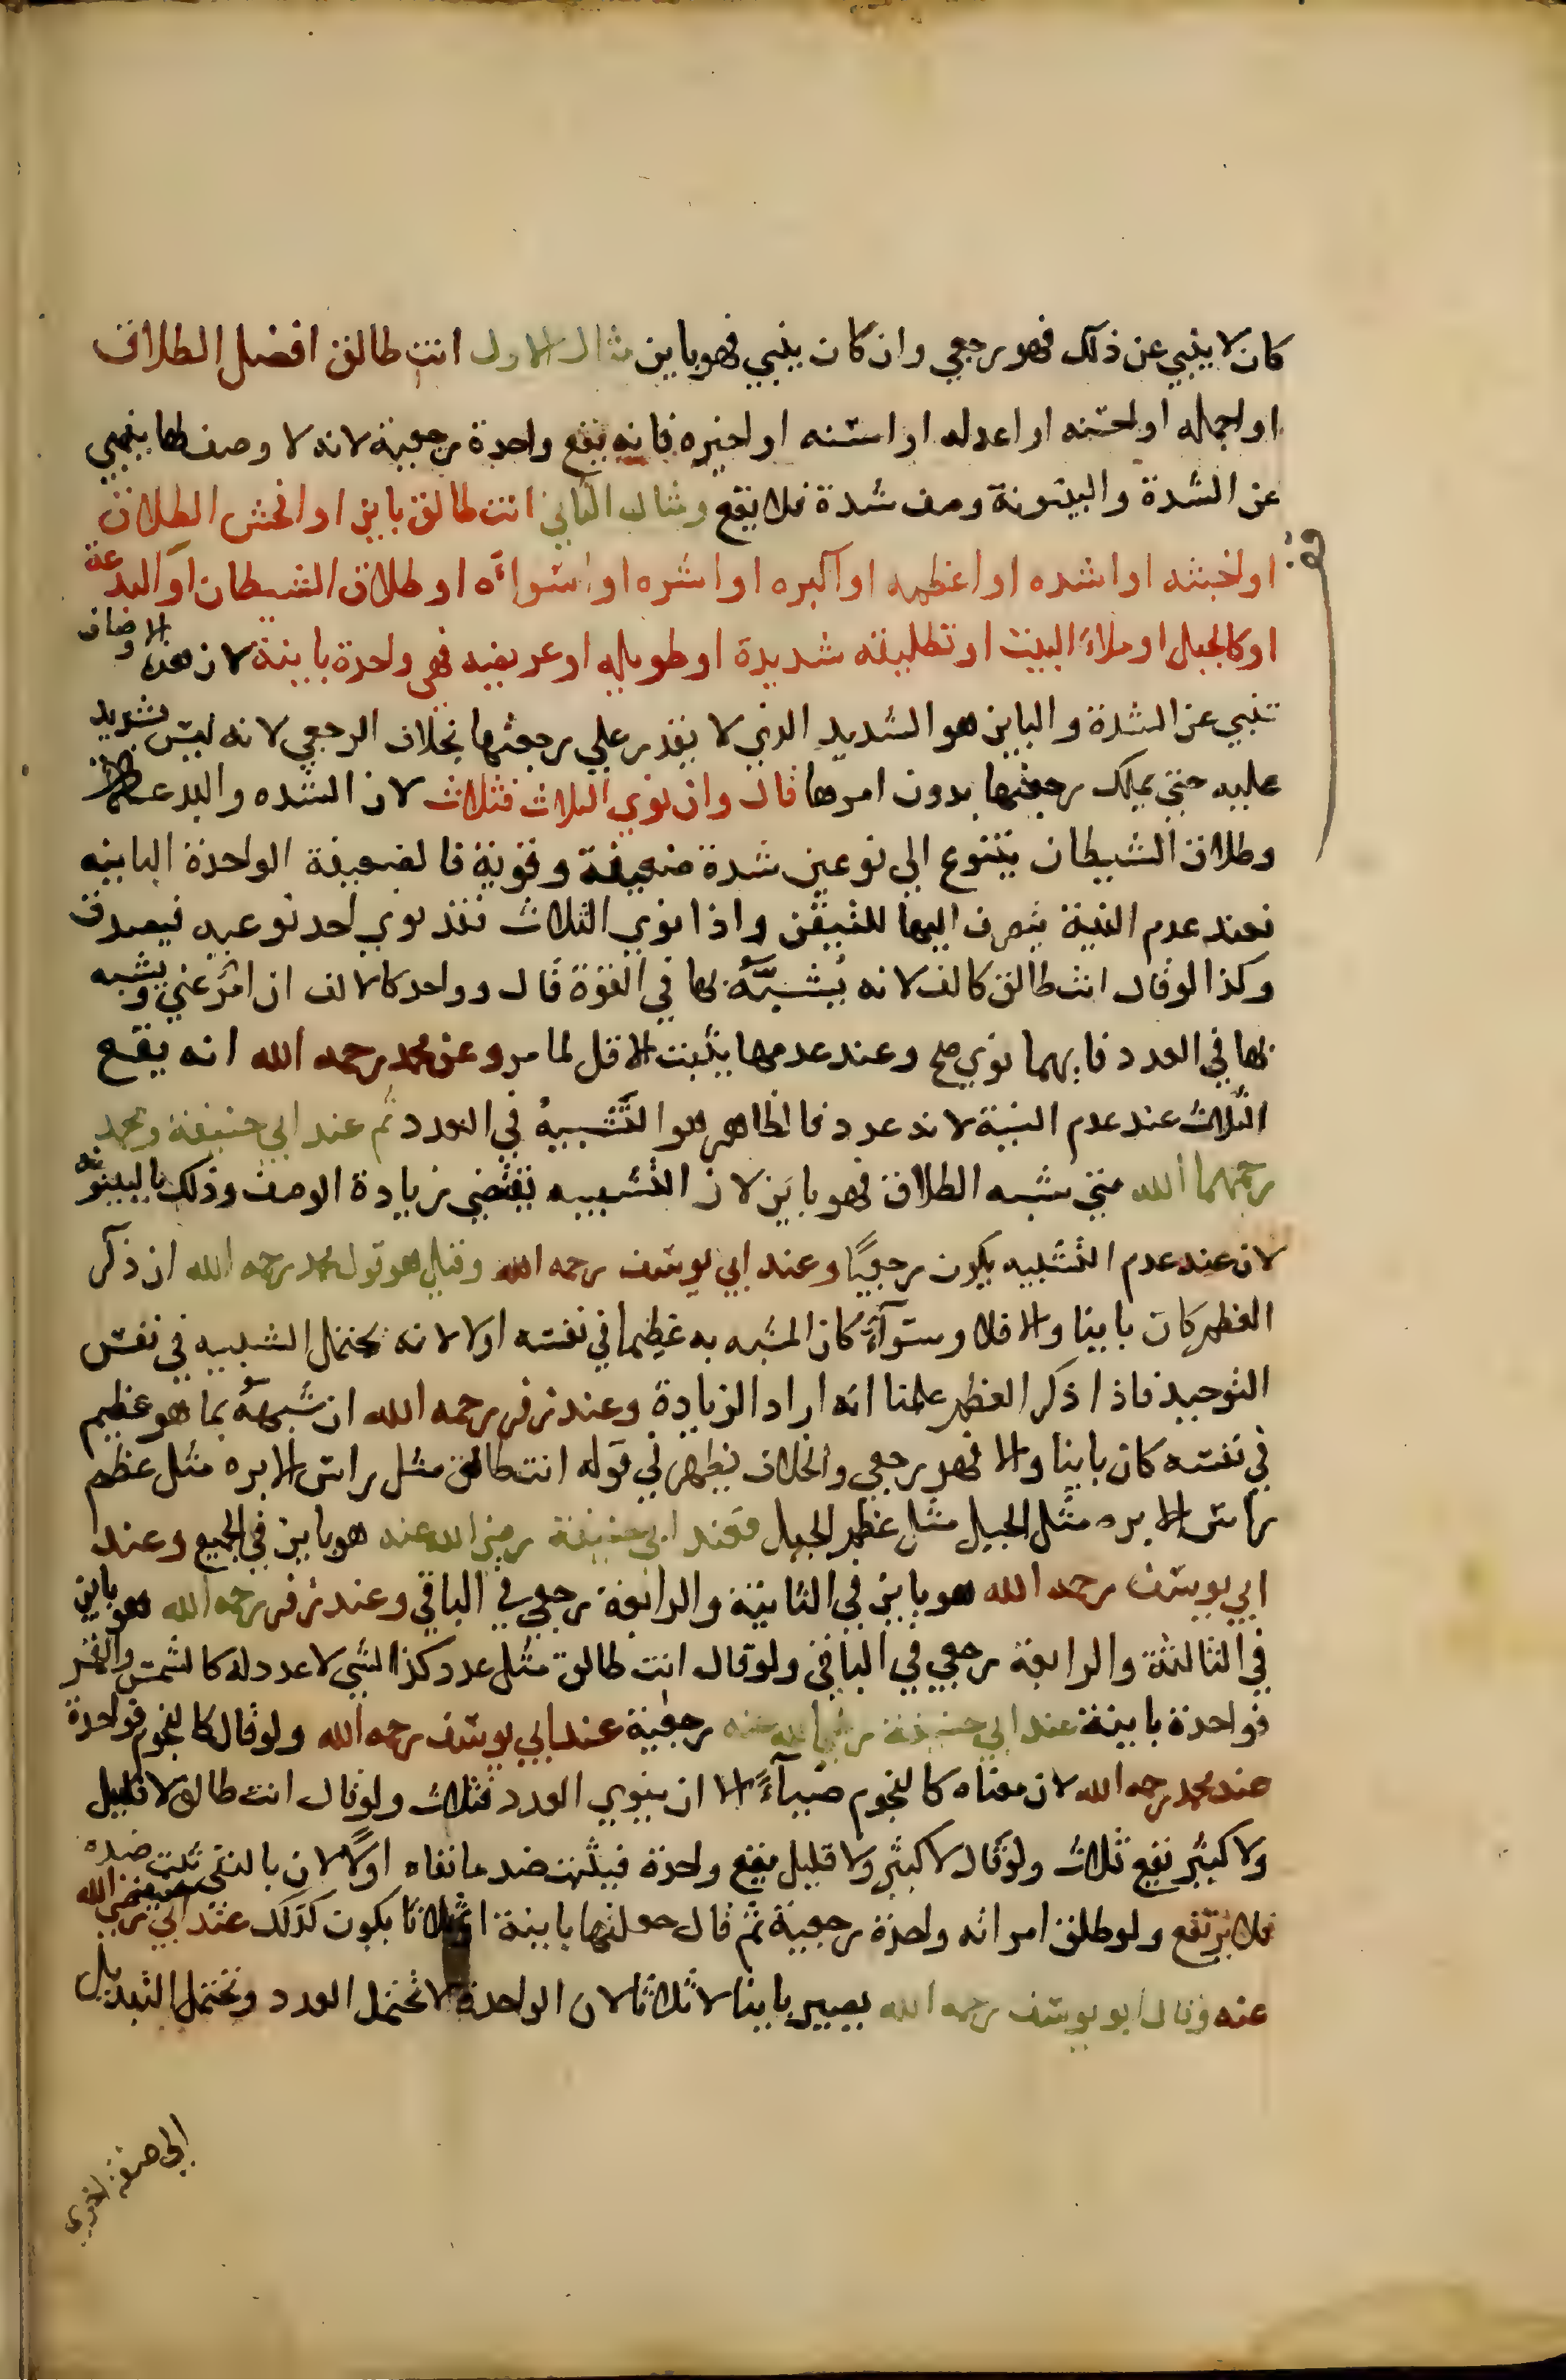 كان لا ينبي عن ذلك فهو رجعي وان كان ينبي فهو باين مثال الاول انت طالق افضل الطلاق
او اجمله او احسنه او اعدله او اسنه او اخيره فانه يقع واحدة رجعية لانه لا وصف لها ينبي
عن الشدة والبينونة وصف شدة فلا يقع ومثال الثاني انت طالق باين او افحش الطلاق
او اخبثه او اشده او اعظمه او اكبره او اشره او اسواه او طلاق الشيطان او البدعة
او كالجبل او ملاء البيت او تطليقه شديدة او طويله او عريضه فهي واحدة باينة لان هذه الاوصاف
تنبي عن الشدة والباين هو الشديد الذي لا يقدر علي رجعتها بخلاف الرجعي لانه ليس بشديد
عليه حتي يملك رجعتها بدون امرها قال وان نوي الثلاث فثلاث لان الشده والبدعة
وطلاق الشيطان يتنوع الي نوعين شدة ضعيفة وقوية فالضعيفة الواحدة الباينه
فعند عدم النية يصرف اليها للتيقن واذا نوي الثلاث فقد نوي احد نوعيه فيصدق
وكذا لو قال انت طالق كالف لانه يُشبَّهُ بها في القوة قال وواحد كالالف ان امر عني ويشبه
بها في العدد فايهما نوي صح وعند عدمها يثبت الاقل لما مر وعن محمد رحمه الله انه يقع
الثلاث عند عدم النية لانه عدد فالظاهر هو التشبيه في العدد ثم عند ابي حنيفة ومحمد
رحمهما الله متي شبه الطلاق فهو باين لان التشبيه يقتضي زيادة الوصف وذلك بالبينونة
لان عند عدم التشبيه يكون رجعيًا وعند ابي يوسف رحمه الله وقيل هو قول محمد رحمه الله ان ذكر
العظم كان باينا والا فلا وسوآء كان المشبه به عظيما في نفسه اولا لانه يحتمل التشبيه في نفس
التوحيد فاذا ذكر العظم علمنا انه اراد الزيادة وعند زفر رحمه الله ان شبهه بما هو عظيم
في نفسه كان باينا والا فهو رجعي والخلاف يظهر في قوله انت طالق مثل راس الابره مثل عظم
راس الابره مثل الجبل مثل عظم الجبل فعند ابي حنيفة رضي الله عنه هو باين في الجميع وعند
ابي يوسف رحمه الله هو باين في الثانية والرابعة رجعي في الباقي وعند زفر رحمه الله هو باين
في الثالثة والرابعة رجعي في الباقي ولو قال انت طالق مثل عدد كذا لشي لا عدد له كالشمس والقمر
فواحدة باينة عند ابي حنيفة رضي الله عنه رجعية عند ابي يوسف رحمه الله ولو قال كالنجوم فواحدة
عند محمد رحمه الله لان معناه كالنجوم ضياءً الا ان ينوي العدد فثلاث ولو قال انت طالق لا قليل
ولا كثير يقع ثلاث ولو قال لا كثير ولا قليل يقع واحدة فيثبت ضد ما نفاه اولًا لان بالنفي ثبت ضده
فلا يرتفع ولو طلق امراته واحدة رجعية ثم قال جعلتها باينة او ثلاثا يكون كذلك عند ابي حنيفة رضي الله
عنه وقال ابو يوسف رحمه الله يصير باينا لا ثلاثا لان الواحدة لا تحتمل العدد وتحتمل التبديل